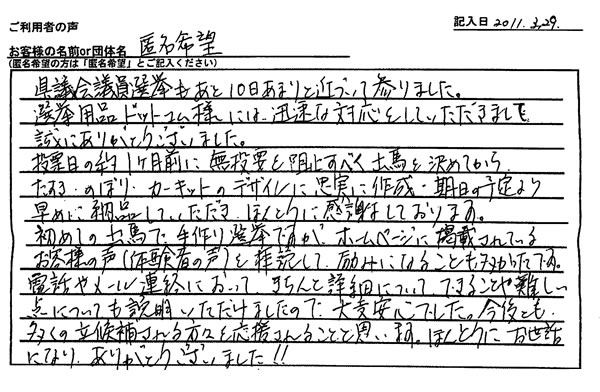 ご利用者の声
記入日 2011.3.29.
お客様の名前or団体名 匿名希望
(匿名希望の方は「匿名希望」とご記入ください)
県議会議員選挙もあと10日あまりと近づいて参りました。
選挙用品ドットコム様には、迅速な対応をしていただきまして
誠にありがとうございました。
投票日の約1ヶ月前に無投票を阻止すべく出馬を決めてから
たすき・のぼり・カーキットのデザインに忠実に作成・期日の予定より
早めに納品していただき、ほんとうに感謝しております。
初めての出馬で、手作り選挙ですが、ホームページに掲載されている
お客様の声(体験者の声)を拝読して、励みになることも多かったです。
電話やメール連絡において、きちんと詳細について、できることや難しい
点についても説明いただけましたので、大変安心でした。今後とも、
多くの立候補される方々を応援されることと思います。ほんとうにお世話
になり、ありがとうございました!!